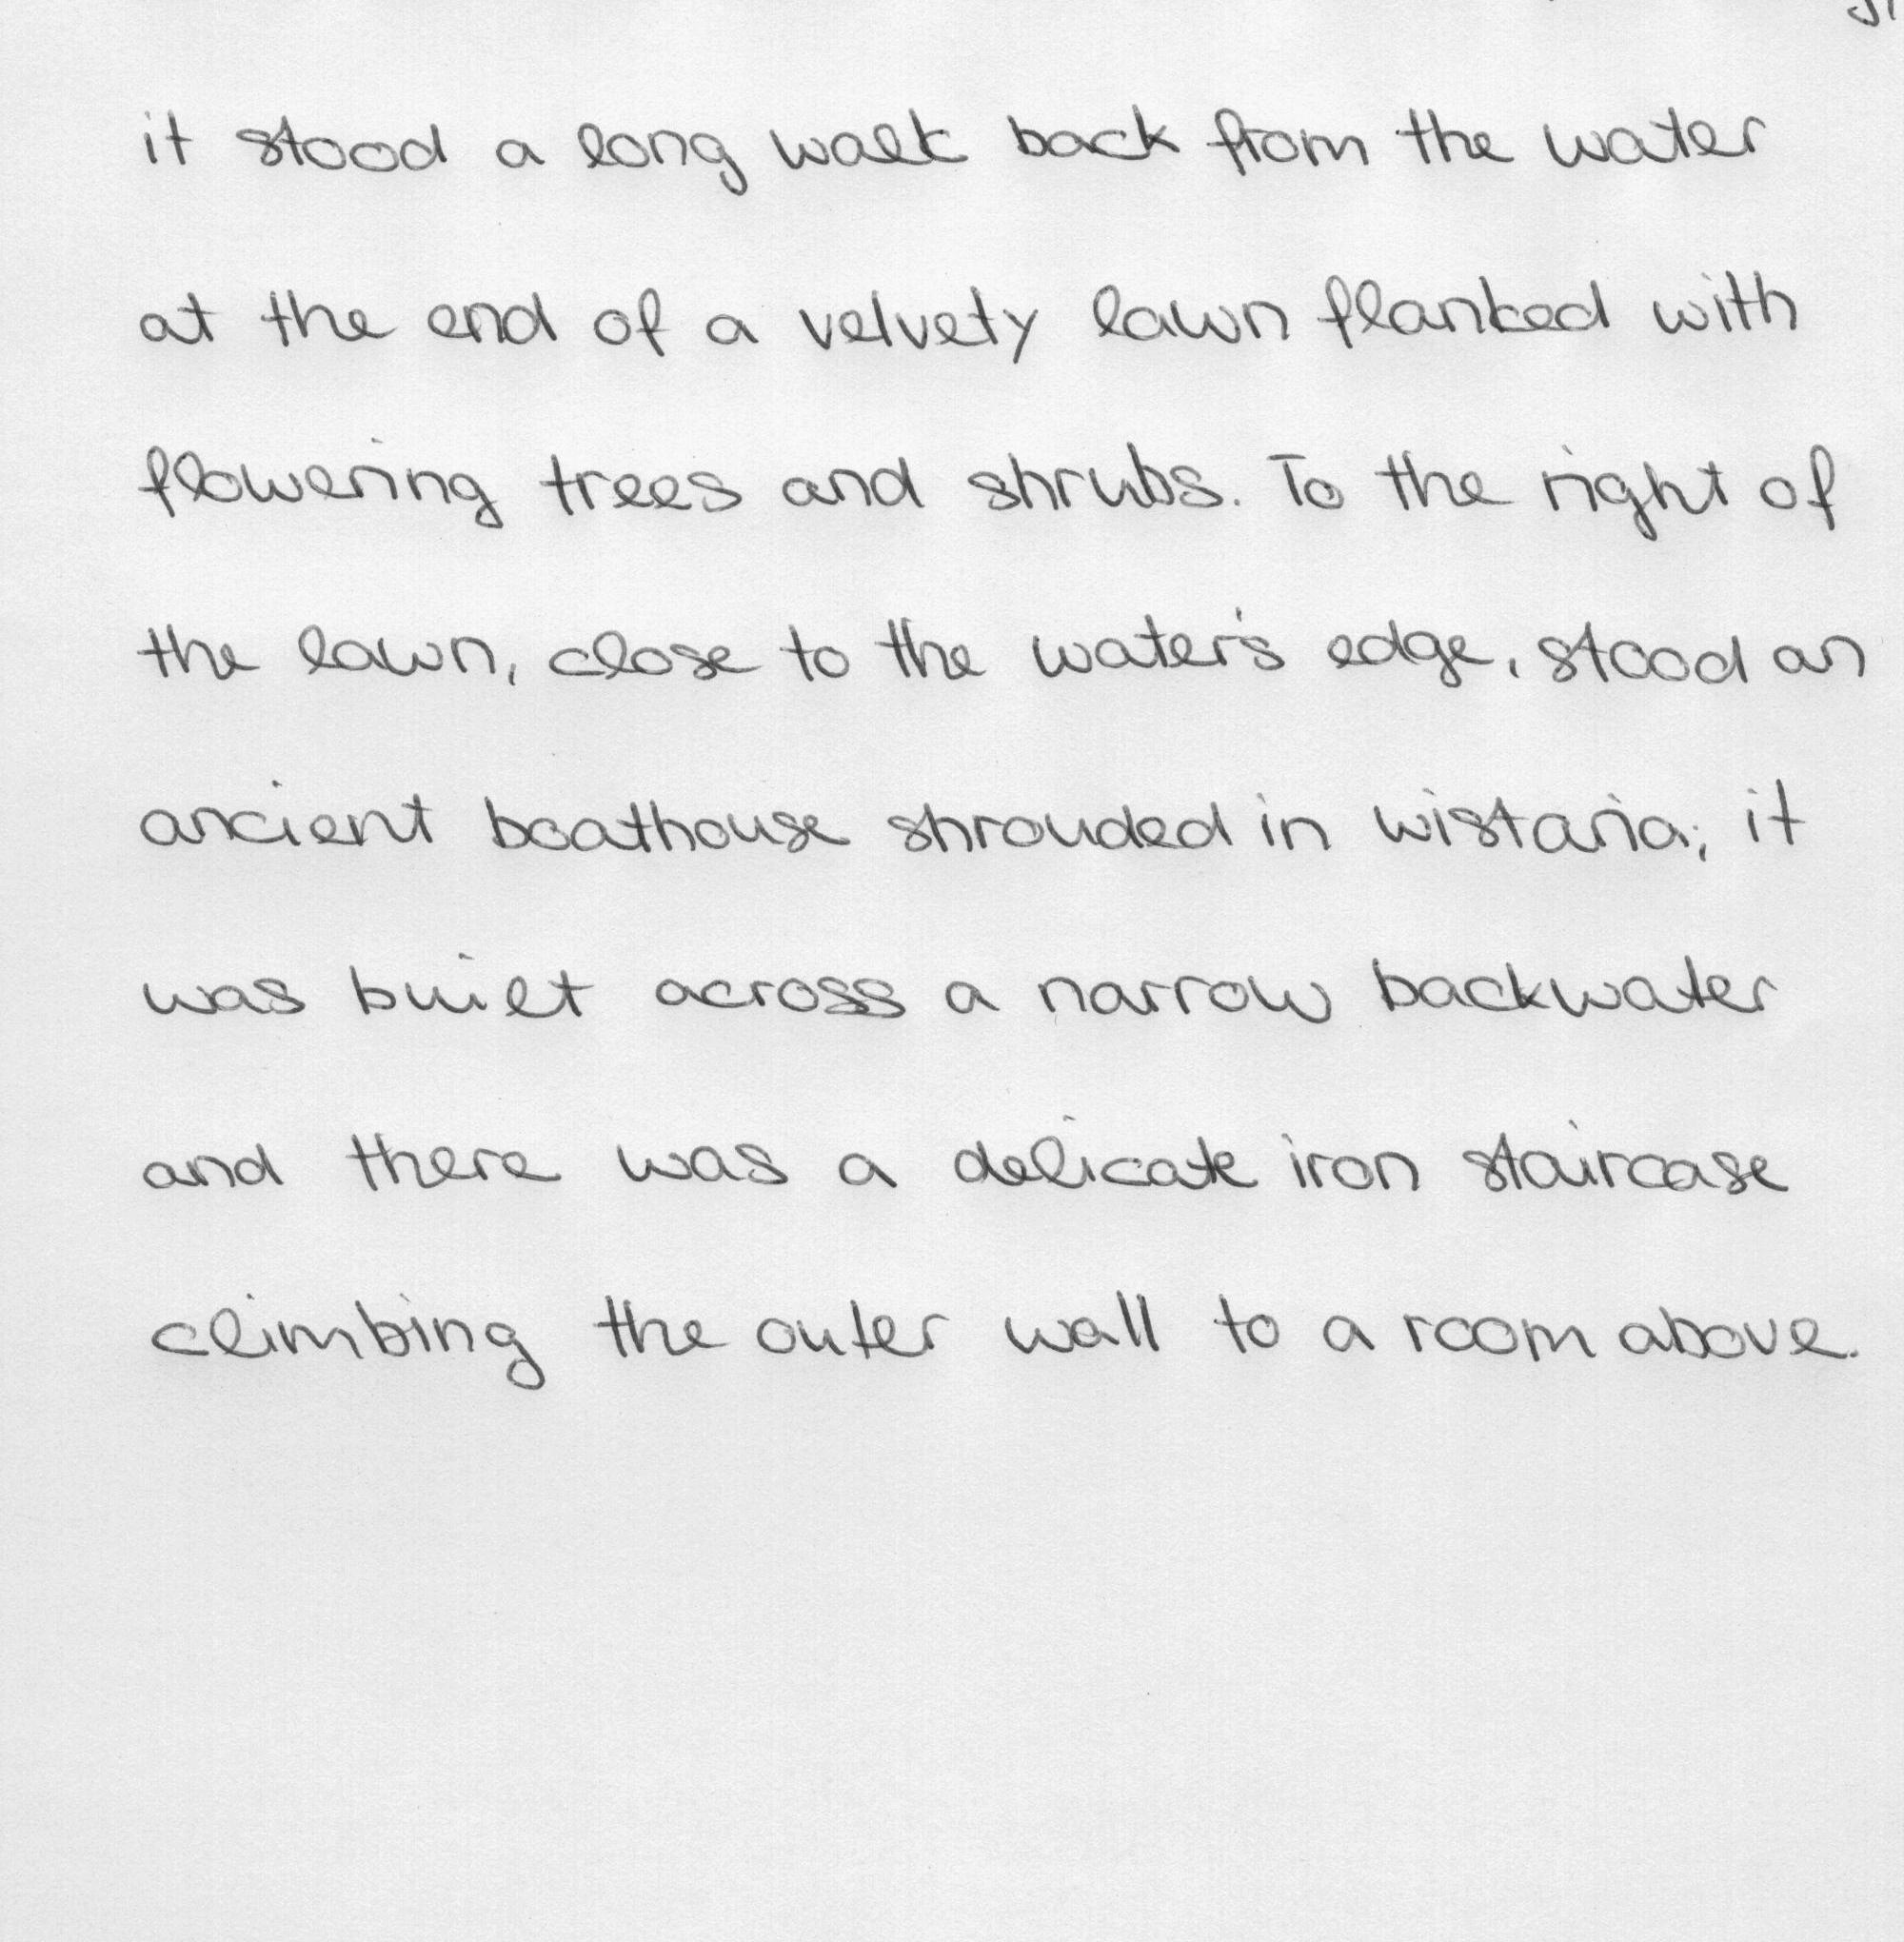 it stood a long walk back from the water
at the end of a velvety lawn flanked with
flowering trees and shrubs. To the right of
the lawn, close to the water's edge, stood an
ancient boathouse shrouded in wistaria; it
was built across a narrow backwater
and there was a delicate iron staircase
climbing the outer wall to a room above.